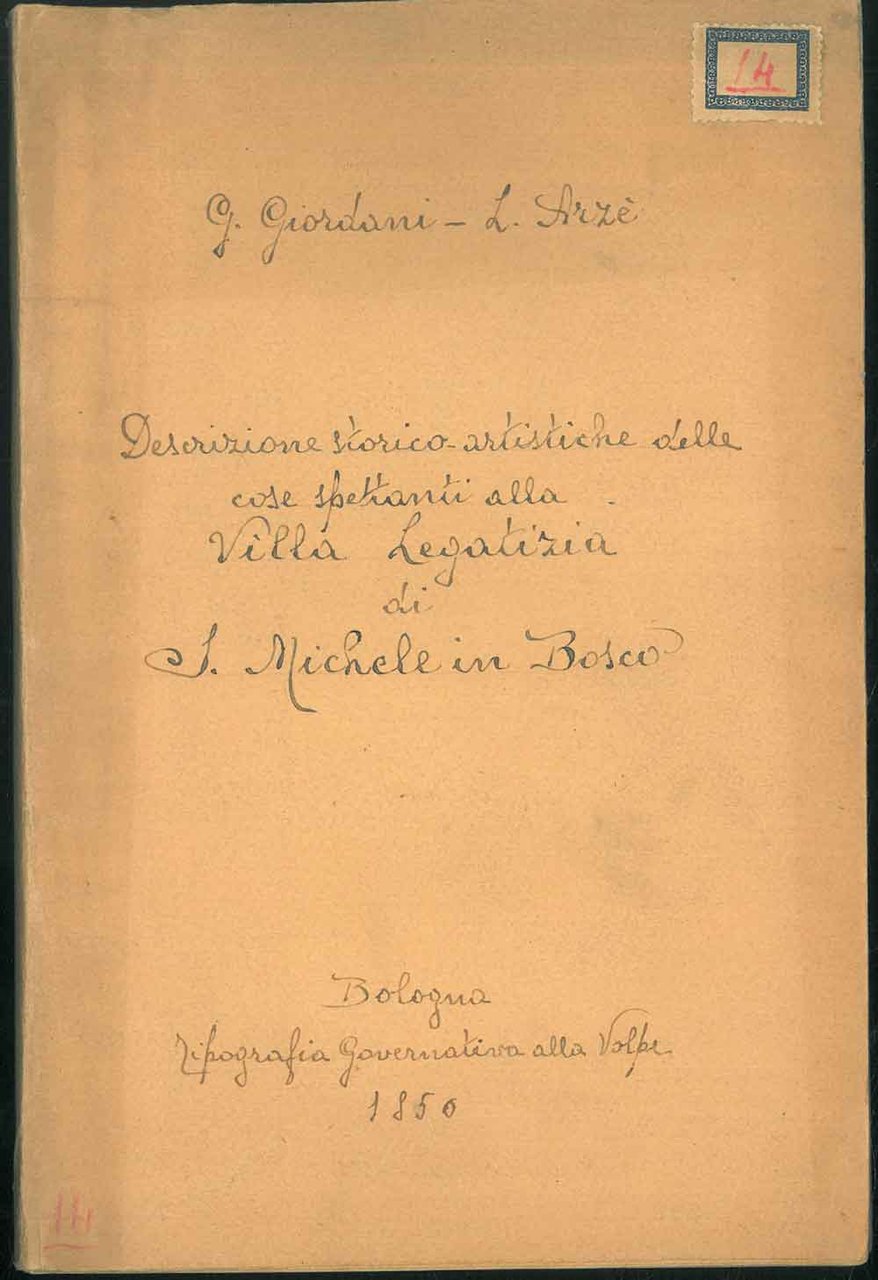 14
G. Giordani - L. Arzè
Descrizione storico-artistiche delle
cose spettanti alla
Villa Legatizia
di
S. Michele in Bosco
Bologna
Tipografia Governativa alla Volpe
1850
14